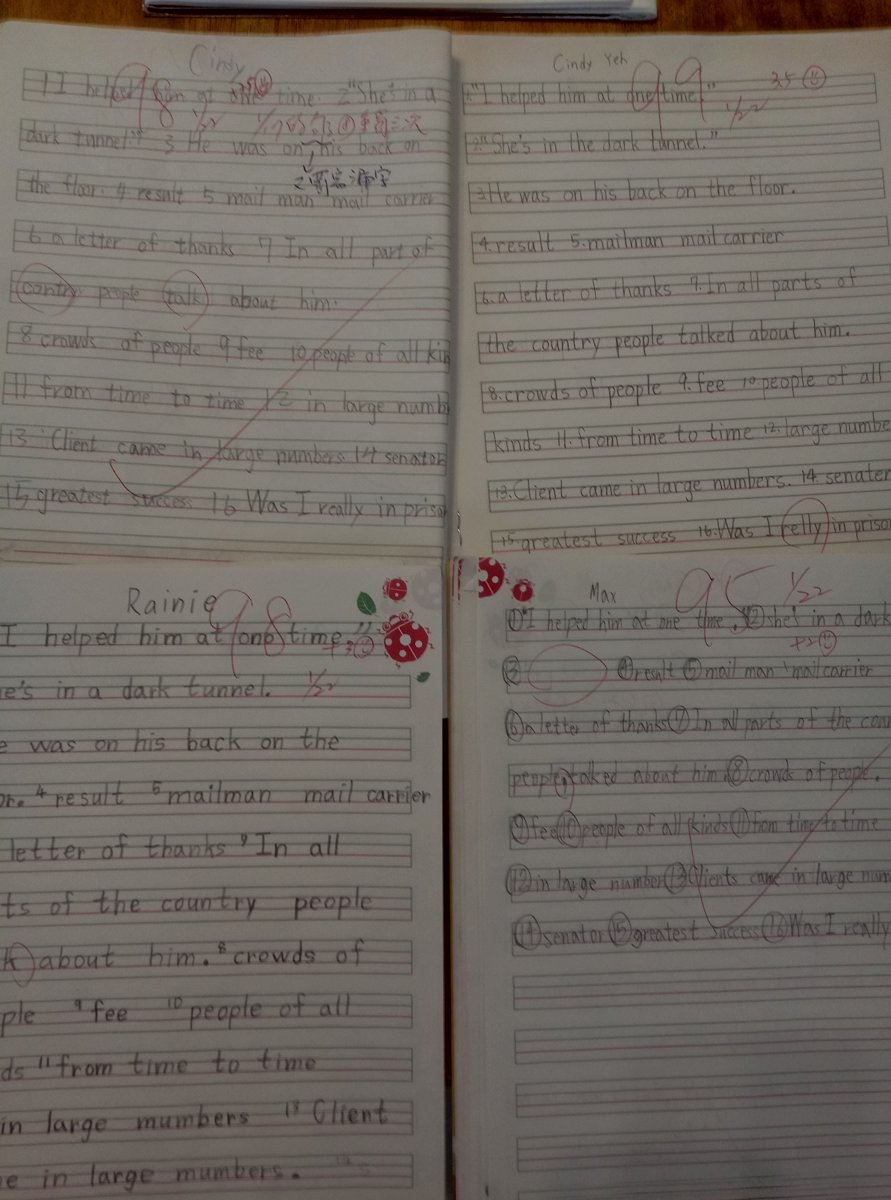 Cindy
98
1 I helped him at one time. 2 "She's in a
1/22
dark tunnel." 3 He was on his back on
the floor. 4 result 5 mail man mail carrier
6 a letter of thanks 7 In all part of
contry people talk about him.
8 crowds of people 9 fee 10 people of all kin
11 from time to time 12 in large numb
13 Client came in large numbers. 14 senator
15 greatest success 16 Was I really in prison
Cindy Yeh
99
35
1."I helped him at one time."
1/22
2."She's in the dark tunnel."
3.He was on his back on the floor.
4.result 5.mailman mail carrier
6.a letter of thanks 7.In all parts of
the country people talked about him.
8.crowds of people 9.fee 10.people of all
kinds 11.from time to time 12.large numbe
13.Client came in large numbers. 14.senater
15.greatest success 16.Was I relly in prison
Rainie
98
I helped him at one time."
e's in a dark tunnel. 1/22
e was on his back on the
or. 4 result 5 mailman mail carrier
letter of thanks 7 In all
ts of the country people
k about him. 8 crowds of
ple 9 fee 10 people of all
ds 11 from time to time
in large mumbers 13 Client
e in large mumbers.
Max
95
1/22
① "I helped him at one time. ② she's in a dark
+2
③ ④ result ⑤ mail man mail carrier
⑥ a letter of thanks ⑦ In all parts of the coun
people, talked about him. ⑧ crowds of people.
⑨ fee ⑩ people of all kinds ⑪ from time to time
⑫ in large number ⑬ Clients came in large num
⑭ senator ⑮ greatest success ⑯ Was I really